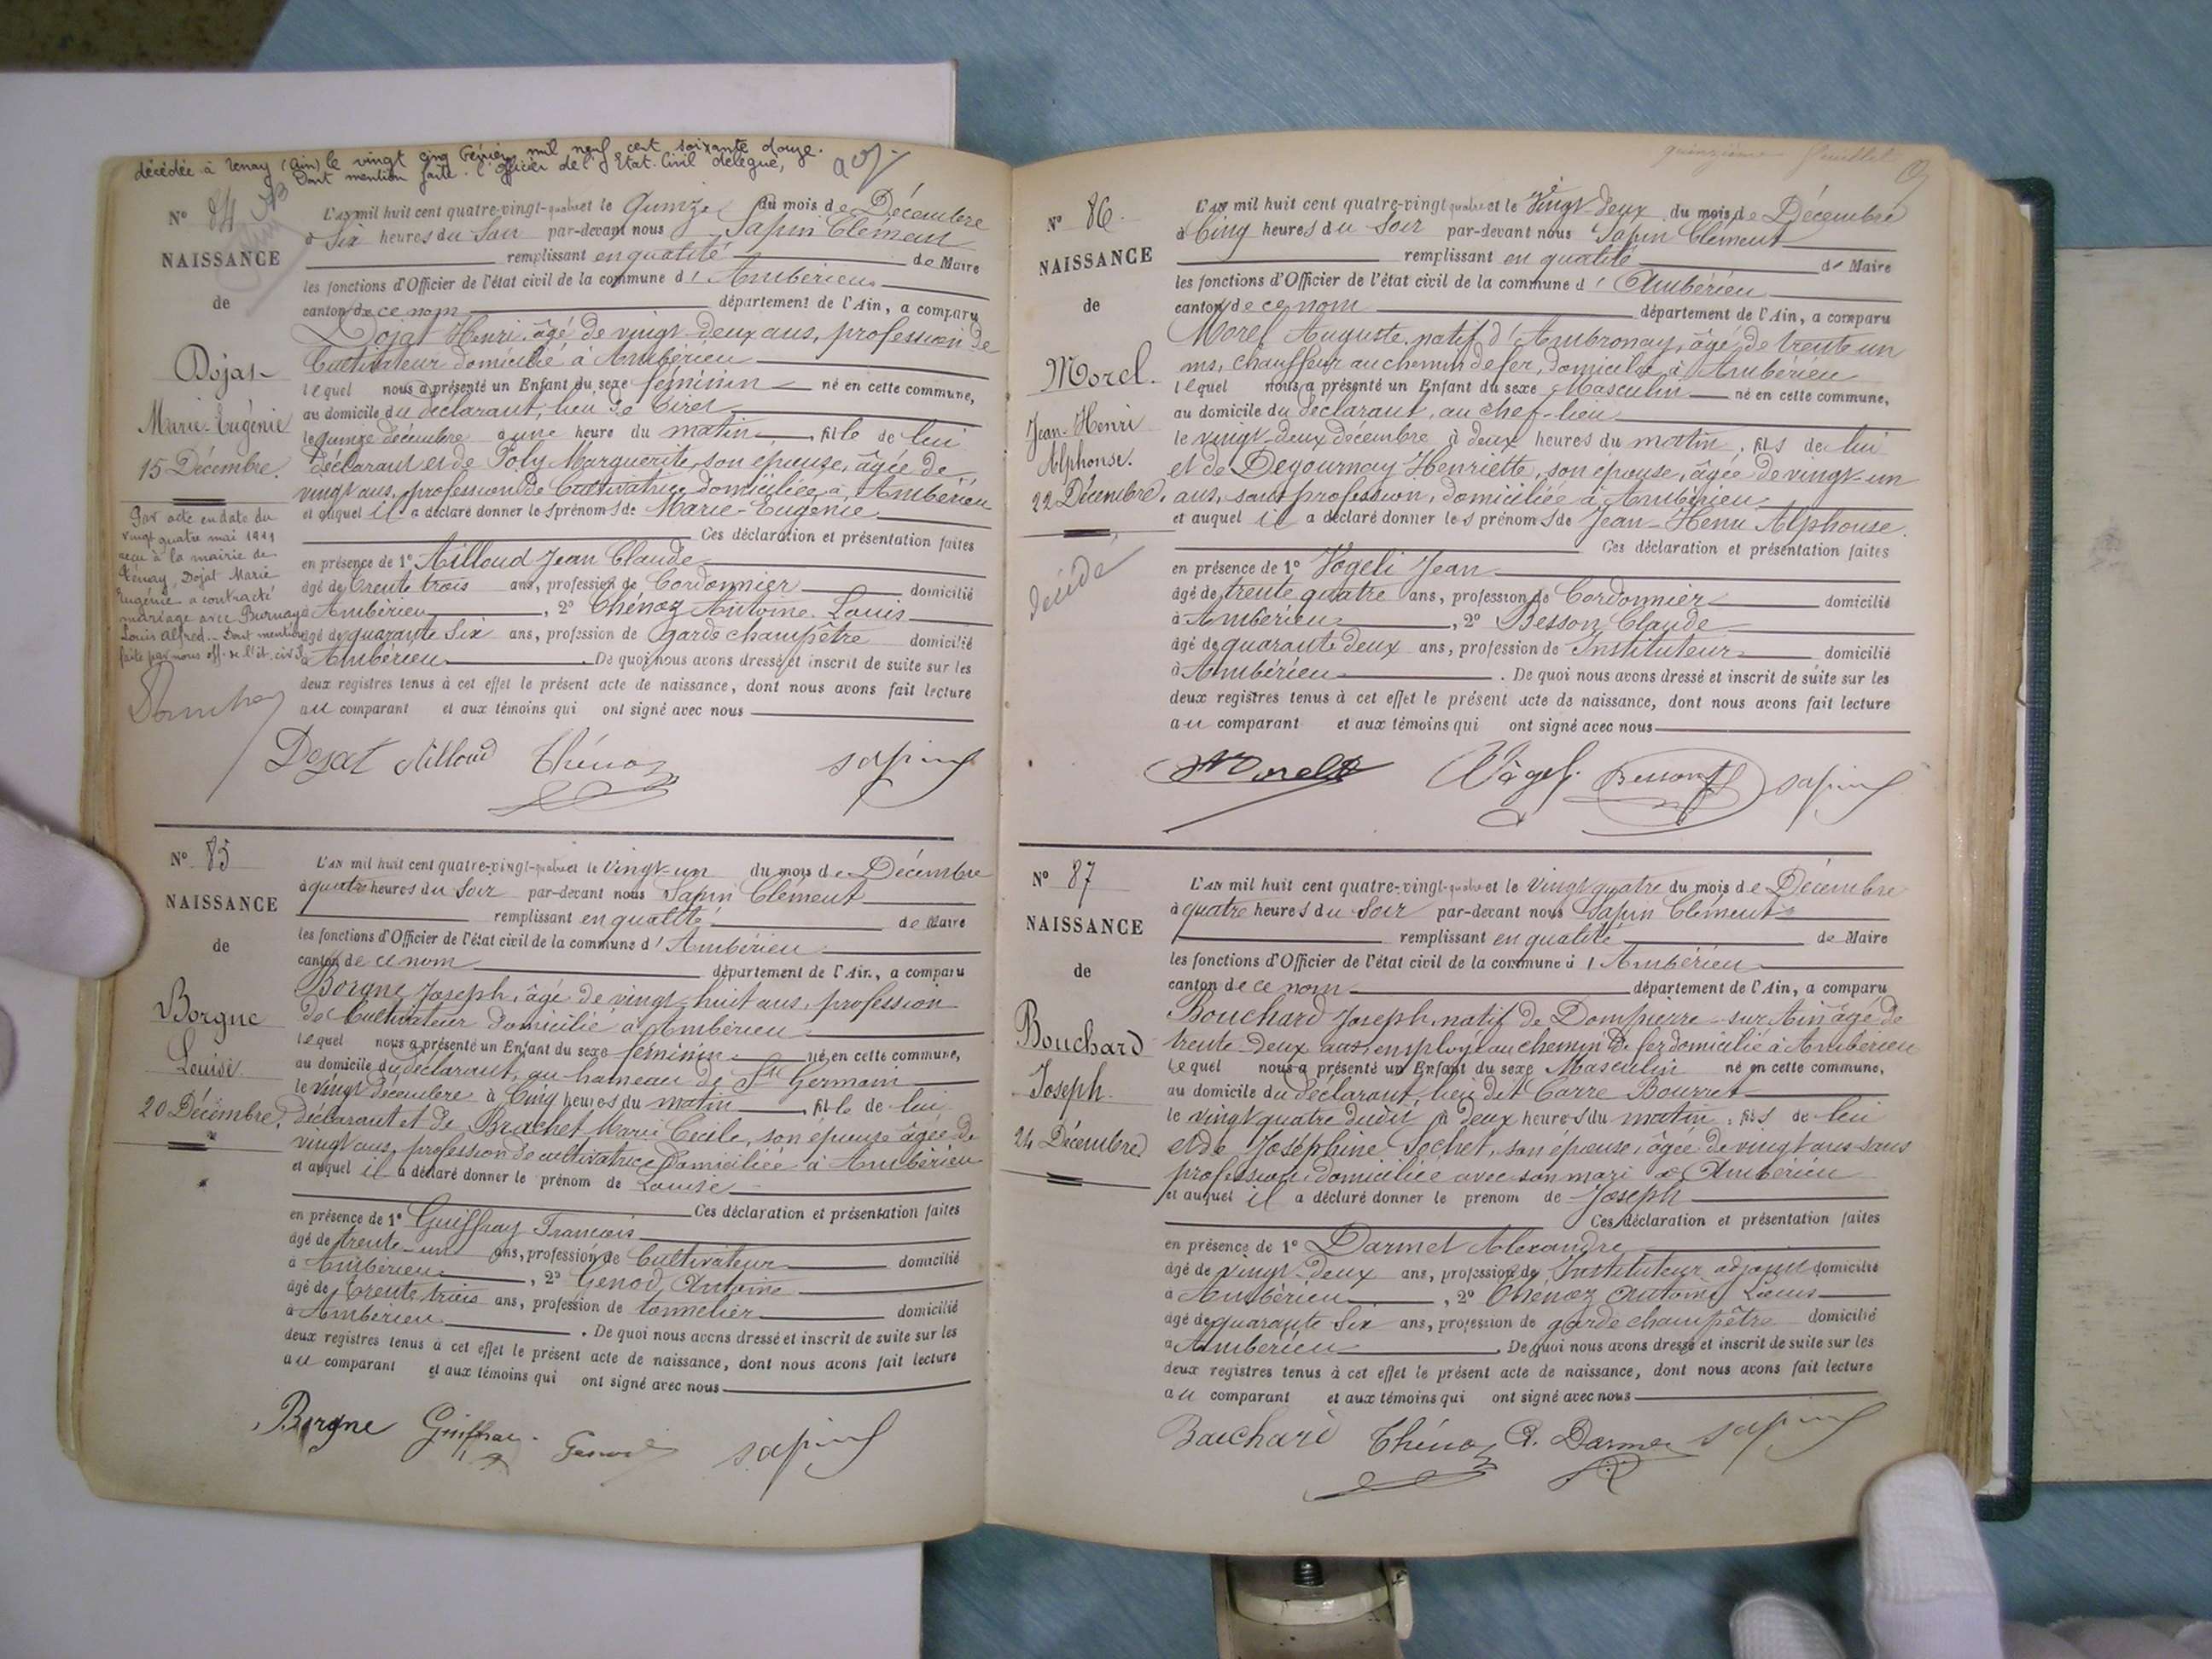 décédée à Tenay (Ain) le vingt cinq Février mil neuf cent soixante douze.
Dont mention faite. l'officier de l'Etat-Civil délégué,
N° 84
NAISSANCE
de
Dojat
Marie-Eugénie
15 Décembre.
Par acte en date du
vingt quatre mai 1911
reçu à la mairie de
Tenay, Dojat Marie
Eugénie a contracté
mariage avec Burnay
Louis Alfred. Dont mention
faite par nous off. de l'ét. civil
L'AN mil huit cent quatre-vingt-quatre et le Quinze du mois de Décembre
à Six heures du Soir par-devant nous Sapin Clément
remplissant en qualité de Maire
les fonctions d'Officier de l'état civil de la commune d'Ambérieu
canton de ce nom département de l'Ain, a comparu
Dojat Henri, âgé de vingt-deux ans, profession de
Cultivateur domicilié à Ambérieu
lequel nous a présenté un Enfant du sexe féminin né en cette commune,
au domicile du déclarant, lieu de Tiret
le quinze décembre à une heure du matin, fille de lui
déclarant et de Poly Marguerite, son épouse, âgée de
vingt ans, profession de Cultivatrice domiciliée à Ambérieu
et auquel il a déclaré donner les prénoms de Marie-Eugénie
Ces déclaration et présentation faites
en présence de 1° Ailloud Jean Claude
âgé de trente trois ans, profession de Cordonnier domicilié
à Ambérieu, 2° Thénoz Antoine Louis
âgé de quarante six ans, profession de garde champêtre domicilié
à Ambérieu. De quoi nous avons dressé et inscrit de suite sur les
deux registres tenus à cet effet le présent acte de naissance, dont nous avons fait lecture
au comparant et aux témoins qui ont signé avec nous
Dojat Ailloud Thénoz Sapin
N° 85
NAISSANCE
de
Borgne
Louise
20 Décembre.
L'AN mil huit cent quatre-vingt-quatre et le vingt-un du mois de Décembre
à quatre heures du Soir par-devant nous Sapin Clément
remplissant en qualité de Maire
les fonctions d'Officier de l'état civil de la commune d'Ambérieu
canton de ce nom département de l'Ain, a comparu
Borgne Joseph, âgé de vingt-huit ans, profession
de Cultivateur domicilié à Ambérieu
lequel nous a présenté un Enfant du sexe féminin né en cette commune,
au domicile du déclarant, au hameau de St Germain
le vingt décembre à Cinq heures du matin, fille de lui
déclarant et de Brachet Marie Cécile, son épouse âgée de
vingt ans, profession de cultivatrice domiciliée à Ambérieu
et auquel il a déclaré donner le prénom de Louise
Ces déclaration et présentation faites
en présence de 1° Guiffray François
âgé de trente-un ans, profession de Cultivateur domicilié
à Ambérieu, 2° Genod Antoine
âgé de trente trois ans, profession de tonnelier domicilié
à Ambérieu. De quoi nous avons dressé et inscrit de suite sur les
deux registres tenus à cet effet le présent acte de naissance, dont nous avons fait lecture
au comparant et aux témoins qui ont signé avec nous
Borgne Guiffray Genod Sapin
quinzième feuillet
N° 86
NAISSANCE
de
Morel.
Jean-Henri
Alphonse.
22 Décembre.
décédé
L'AN mil huit cent quatre-vingt quatre et le Vingt-deux du mois de Décembre
à Cinq heures du Soir par-devant nous Sapin Clément
remplissant en qualité de Maire
les fonctions d'Officier de l'état civil de la commune d'Ambérieu
canton de ce nom département de l'Ain, a comparu
Morel Auguste, natif d'Ambronay, âgé de trente un
ans, chauffeur au chemin de fer, domicilié à Ambérieu
lequel nous a présenté un Enfant du sexe Masculin né en cette commune,
au domicile du déclarant, au chef-lieu
le vingt-deux décembre à deux heures du matin, fils de lui
et de Degournay Henriette, son épouse, âgée de vingt-un
ans, sans profession, domiciliée à Ambérieu
et auquel il a déclaré donner les prénoms de Jean-Henri Alphonse.
Ces déclaration et présentation faites
en présence de 1° Vogeli Jean
âgé de trente quatre ans, profession de Cordonnier domicilié
à Ambérieu, 2° Besson Claude
âgé de quarante deux ans, profession de Instituteur domicilié
à Ambérieu. De quoi nous avons dressé et inscrit de suite sur les
deux registres tenus à cet effet le présent acte de naissance, dont nous avons fait lecture
au comparant et aux témoins qui ont signé avec nous
Morel Vögeli Besson Sapin
N° 87
NAISSANCE
de
Bouchard
Joseph.
24 Décembre
L'AN mil huit cent quatre-vingt-quatre et le Vingt quatre du mois de Décembre
à quatre heures du Soir par-devant nous Sapin Clément
remplissant en qualité de Maire
les fonctions d'Officier de l'état civil de la commune d'Ambérieu
canton de ce nom département de l'Ain, a comparu
Bouchard Joseph, natif de Dompierre-sur Ain âgé de
trente-deux ans, employé au chemin de fer domicilié à Ambérieu
lequel nous a présenté un Enfant du sexe Masculin né en cette commune,
au domicile du déclarant, lieu dit Carre Bourret
le vingt quatre dudit à deux heures du matin, fils de lui
et de Joséphine Sochet, son épouse, âgée de vingt ans sans
profession, domiciliée avec son mari à Ambérieu
et auquel il a déclaré donner le prénom de Joseph
Ces déclaration et présentation faites
en présence de 1° Darmet Alexandre
âgé de vingt-deux ans, profession de Instituteur adjoint domicilié
à Ambérieu, 2° Thénoz Antoine Louis
âgé de quarante Six ans, profession de garde champêtre domicilié
à Ambérieu. De quoi nous avons dressé et inscrit de suite sur les
deux registres tenus à cet effet le présent acte de naissance, dont nous avons fait lecture
au comparant et aux témoins qui ont signé avec nous
Bouchard Thénoz A. Darmet Sapin